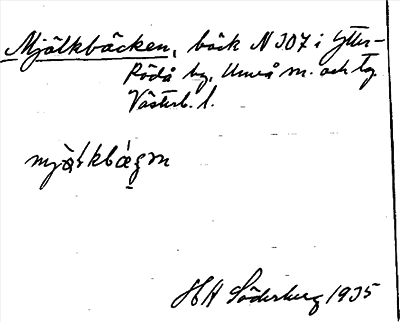 Mjölkbäcken, bäck N 307 i Ytter-
Rödå by, Umeå sn. och tg
Västerb. l.
HA Söderberg 1935